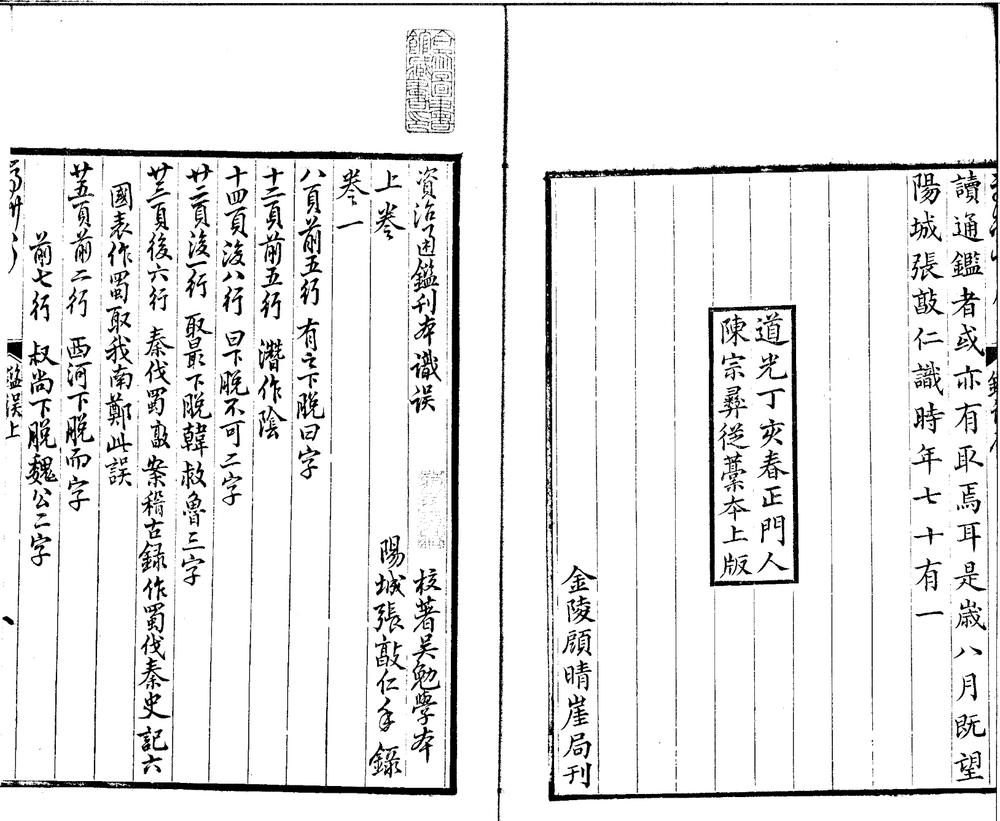 讀通鑑者或亦有取焉耳是歲八月既望
陽城張敦仁識時年七十有一
道光丁亥春正門人
陳宗彝從藳本上版
金陵顧晴崖局刊
資治通鑑刊本識誤
校著吴勉學本
上卷
陽城張敦仁手錄
卷一
八頁前五行 有之下脫曰字
十二頁前五行 潛作陰
十四頁後八行 曰下脫不可二字
廿二頁後一行 聚最下脫韓救魯三字
廿三頁後六行 秦伐蜀敦案稽古録作蜀伐秦史記六
國表作蜀取我南鄭此誤
廿五頁前二行 西河下脫而字
前七行 叔尚下脫魏公二字
識誤上